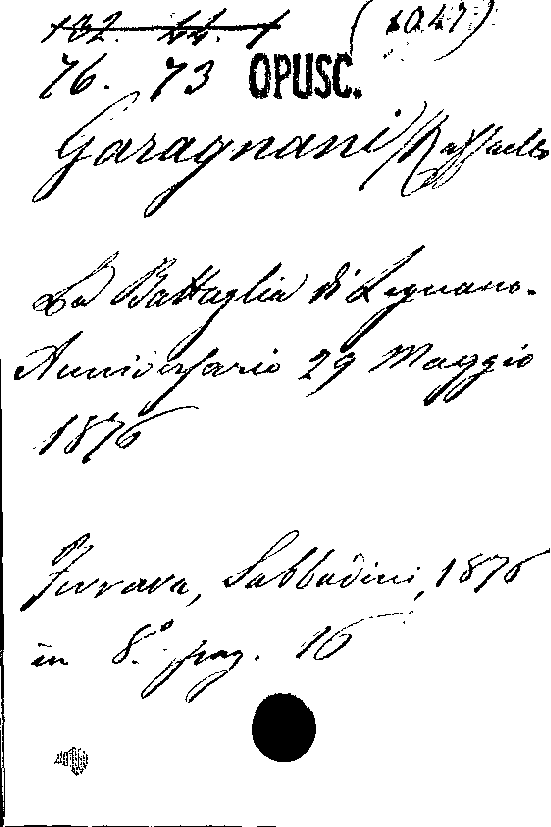 132. 44. 1 (1047)
76. 73 OPUSC.
Garagnani (Raffaello
La Battaglia di Legnano.
Anniversario 29 Maggio
1876
Ferrara, Sabbadini, 1876
in 8.º pag. 16